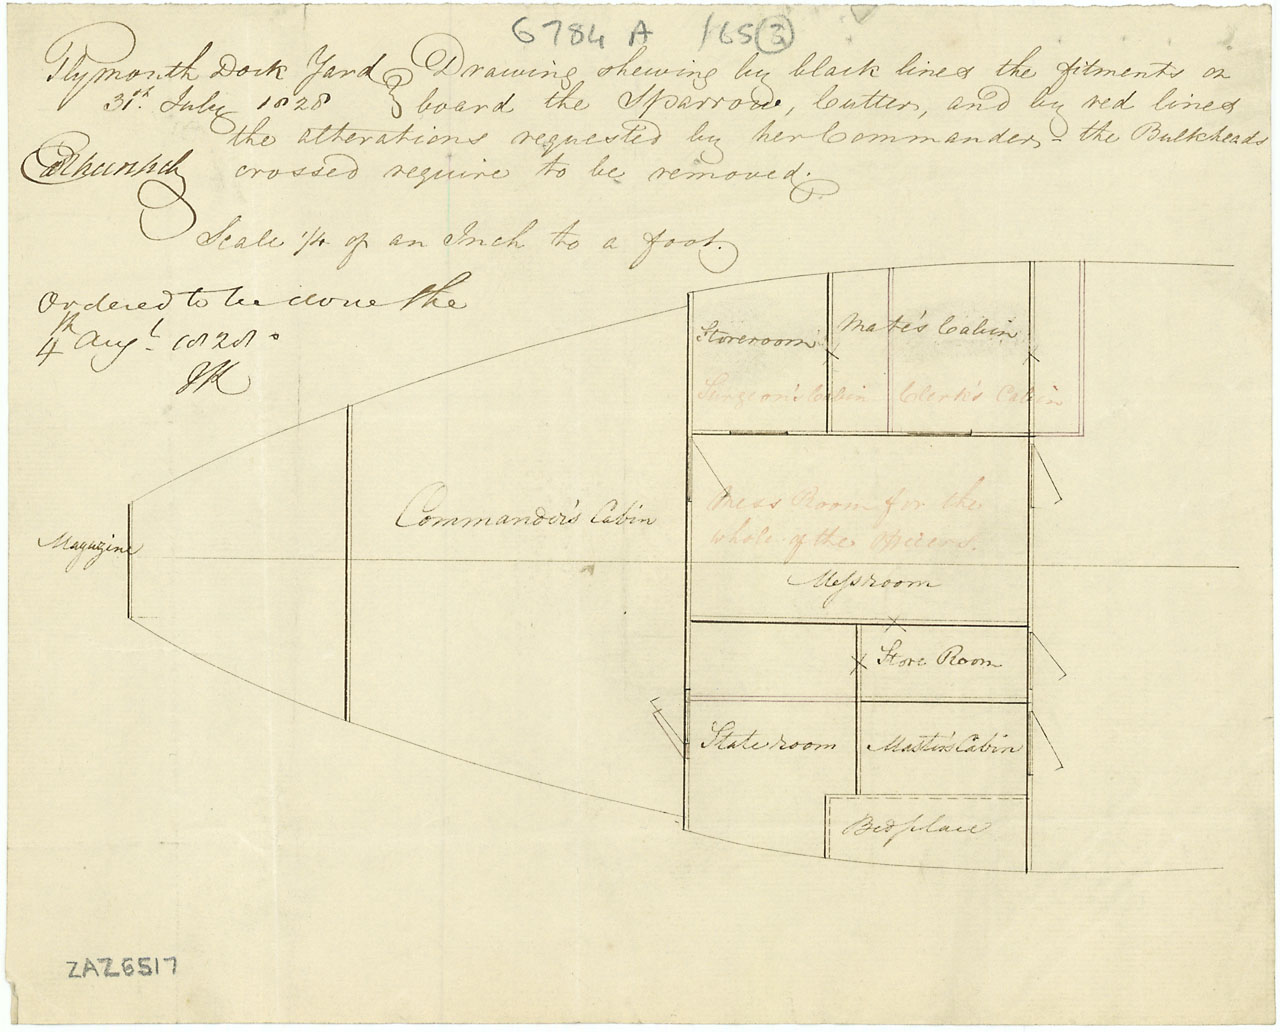 6784 A 165 (3)
Plymouth Dock Yard
31st July 1828
Drawing shewing by black lines the fitments on
board the Sparrow, Cutter, and by red lines
the alterations requested by her Commander - the Bulkheads
crossed require to be removed.
Scale 1/4 of an Inch to a foot.
Ordered to be done the
4th Augt. 1828
Storeroom
Mate's Cabin
Surgeon's Cabin
Clerk's Cabin
Commander's Cabin
Mess Room for the
whole of the Officers.
Magazine
Messroom
Store Room
State room
Master's Cabin
Bedplace
ZAZ6517